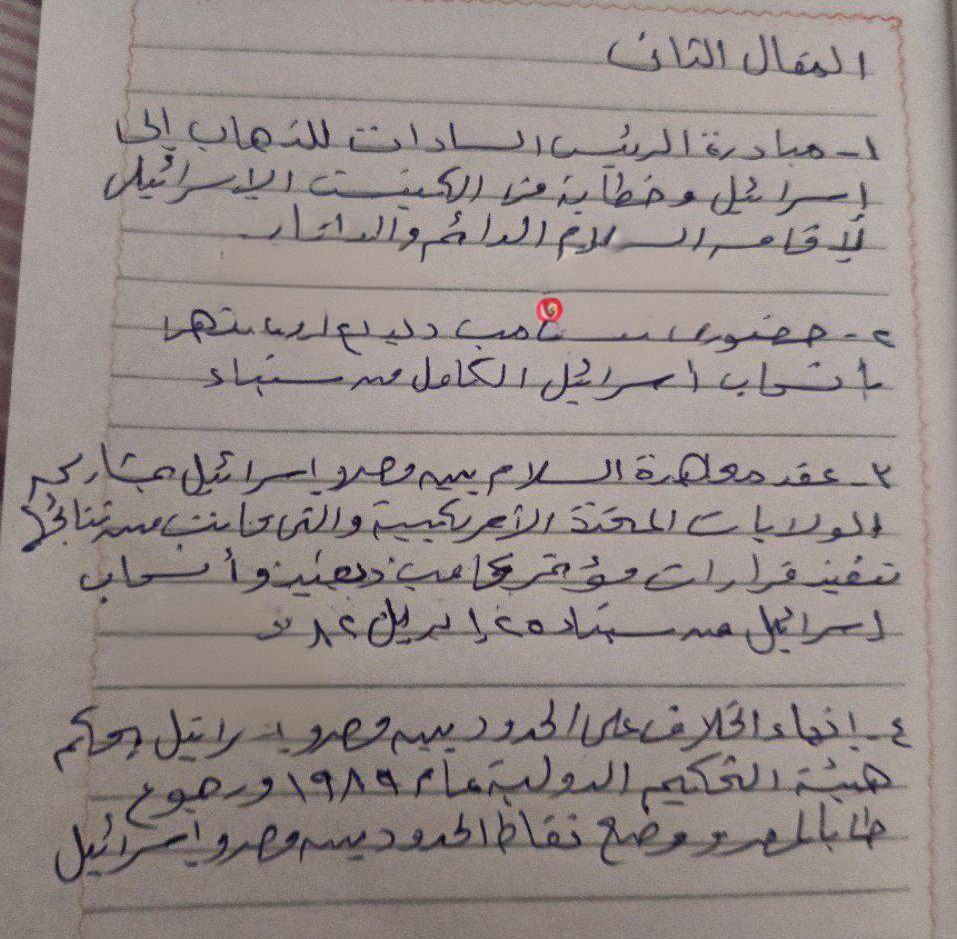 المقال الثانى
١- مبادرة الرئيس السادات للذهاب إلى
إسرائيل وخطابة فى الكنيست الإسرائيلى
لإقامه السلام الدائم والعادل
٢- حضور كامب ديفيد
انسحاب اسرائيل الكامل من سيناء
٣- عقد معاهدة السلام بين مصر وإسرائيل بمشاركه
الولايات المتحدة الأمريكيية والتى كانت من نتائجها
تنفيذ قرارات مؤتمر كامب ديفيد وأنسحاب
اسرائيل من سيناء ٢٥ إبريل ٨٢
٤- إنهاء الخلاف على الحدود بين مصر وإسرائيل بحكم
هيئة التحكيم الدولية عام ١٩٨٩ ورجوع
طابا لمصر ووضع نقاط الحدود بين مصر وإسرائيل